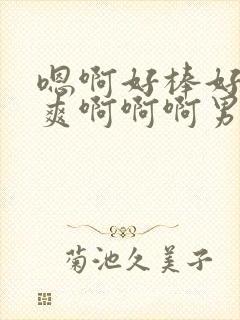 嗯啊好棒好
爽啊啊啊男
菊池久美子